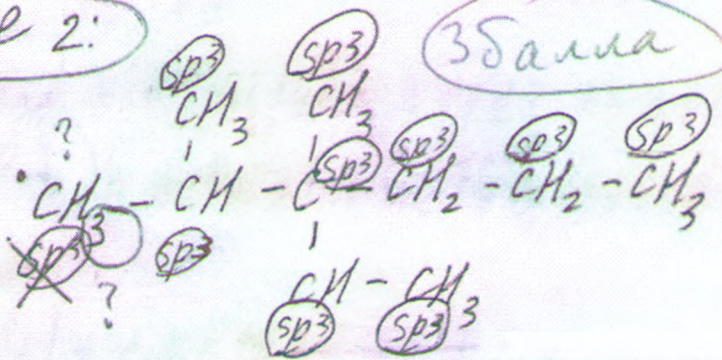 е 2: 3 балла
sp3 sp3
CH3 CH3
? sp3 sp3 sp3 sp3
CH3 - CH - C - CH2 - CH2 - CH3
sp3 sp3
? CH - CH3
sp3 sp3